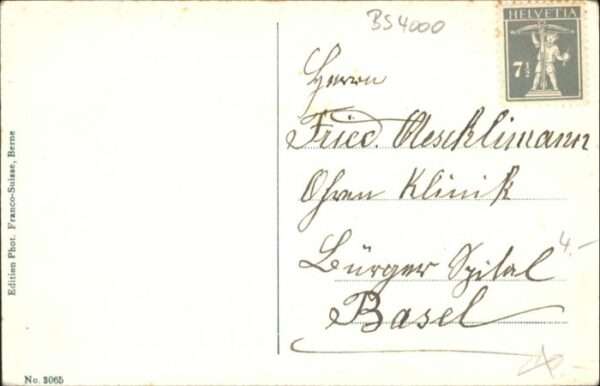 BS 4000
HELVETIA
7½
Herrn
Fried. Aescklimann
Ohren Klinik
Bürger Spital
Basel
4.-
Edition Phot. Franco-Suisse, Berne
No. 3065